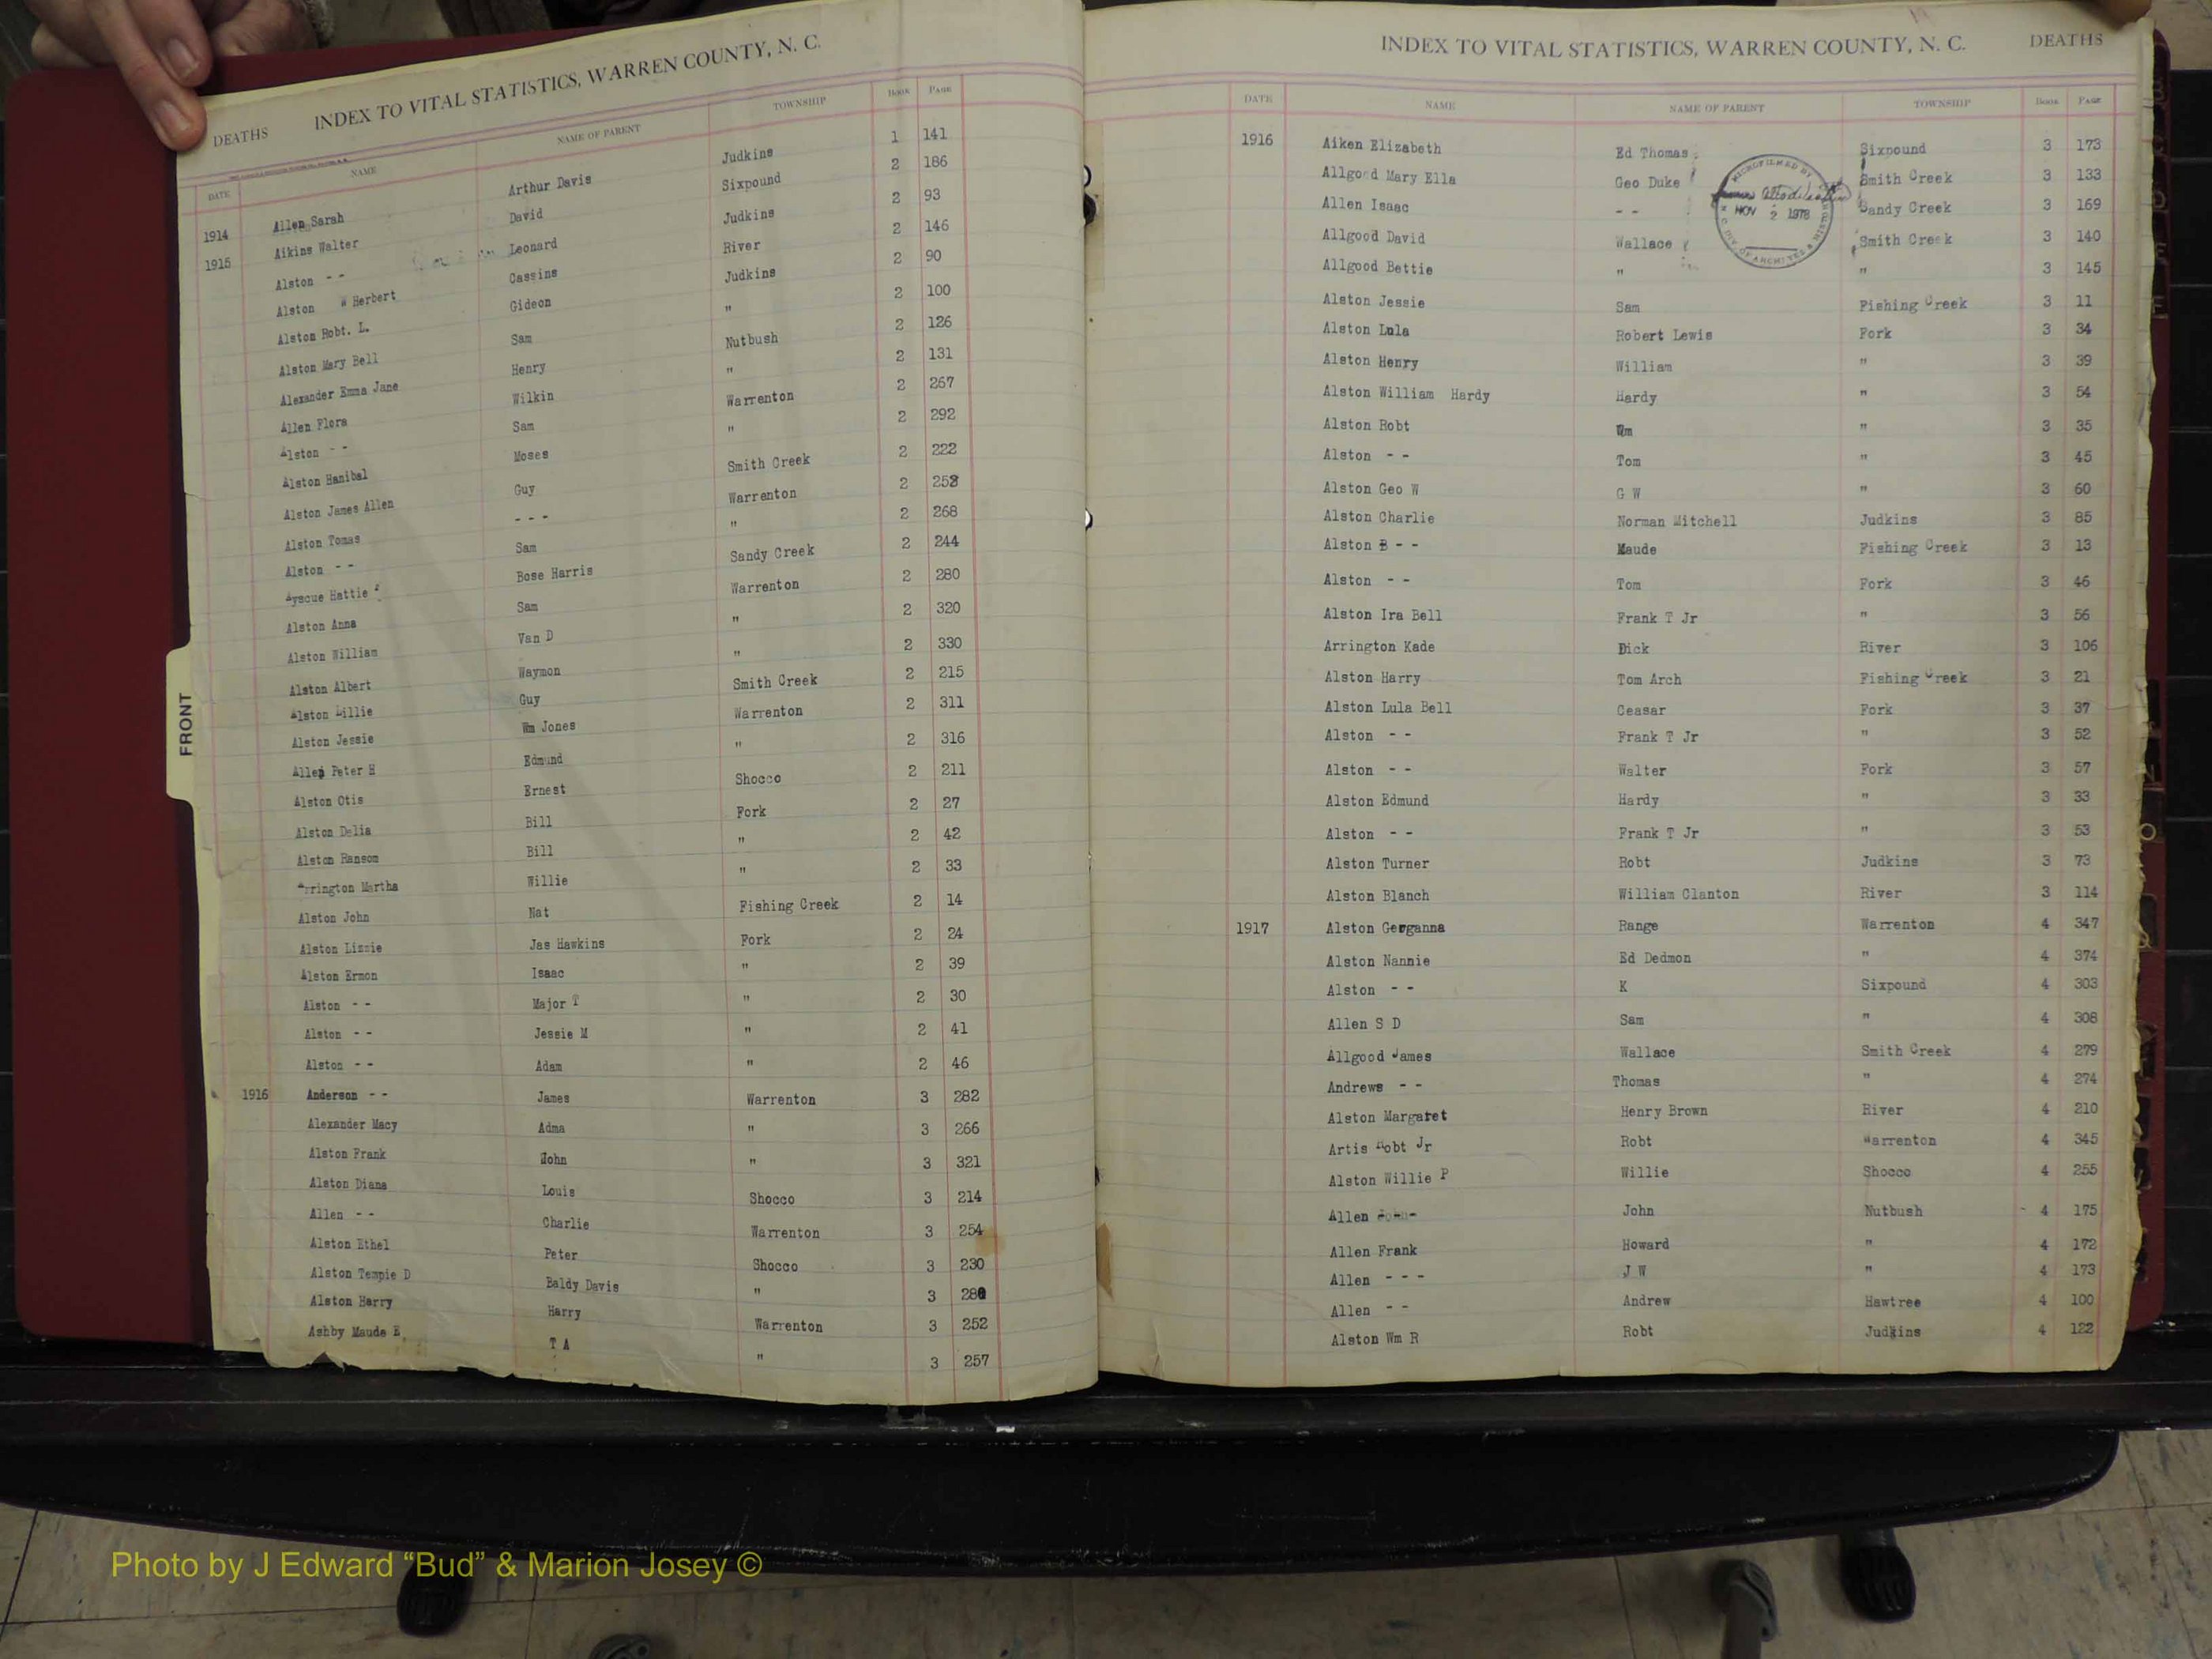 DEATHS INDEX TO VITAL STATISTICS, WARREN COUNTY, N. C.
DATE NAME NAME OF PARENT TOWNSHIP BOOK PAGE
1914 Allen Sarah Arthur Davis Judkins 1 141
1915 Aikins Walter David Sixpound 2 186
Alston - - Leonard Judkins 2 93
Alston W Herbert Cassins River 2 146
Alston Robt. L. Gideon Judkins 2 90
Alston Mary Bell Sam " 2 100
Alexander Emma Jane Henry Nutbush 2 126
Allen Flora Wilkin " 2 131
Alston - - Sam Warrenton 2 267
Alston Hanibal Moses " 2 292
Alston James Allen Guy Smith Creek 2 222
Alston Tomas - - - Warrenton 2
Alston - - Sam " 2 268
Ayscue Hattie Bose Harris Sandy Creek 2 244
Alston Anna Sam Warrenton 2 280
Alston William Van D " 2 320
Alston Albert Waymon " 2 330
Alston Lillie Guy Smith Creek 2 215
Alston Jessie Wm Jones Warrenton 2 311
Allen Peter H Edmund " 2 316
Alston Otis Ernest Shocco 2 211
Alston Delia Bill Fork 2 27
Alston Ransom Bill " 2 42
Arrington Martha Willie " 2 33
Alston John Nat Fishing Creek 2 14
Alston Lizzie Jas Hawkins Fork 2 24
Alston Ermon Isaac " 2 39
Alston - - Major T " 2 30
Alston - - Jessie M " 2 41
Alston - - Adam " 2 46
1916 Anderson - - James Warrenton 3 282
Alexander Macy Adma " 3 266
Alston Frank John " 3 321
Alston Diana Louis Shocco 3 214
Allen - - Charlie Warrenton 3 254
Alston Ethel Peter Shocco 3 230
Alston Tempie D Baldy Davis " 3
Alston Harry Harry Warrenton 3 252
Ashby Maude E T A " 3 257
FRONT
INDEX TO VITAL STATISTICS, WARREN COUNTY, N. C. DEATHS
DATE NAME NAME OF PARENT TOWNSHIP BOOK PAGE
1916 Aiken Elizabeth Ed Thomas Sixpound 3 173
Allgood Mary Ella Geo Duke Smith Creek 3 133
Allen Isaac - - Sandy Creek 3 169
Allgood David Wallace Smith Creek 3 140
Allgood Bettie " " 3 145
Alston Jessie Sam Fishing Creek 3 11
Alston Lula Robert Lewis Fork 3 34
Alston Henry William " 3 39
Alston William Hardy Hardy " 3 54
Alston Robt Wm " 3 35
Alston - - Tom " 3 45
Alston Geo W G W " 3 60
Alston Charlie Norman Mitchell Judkins 3 85
Alston B - - Maude Fishing Creek 3 13
Alston - - Tom Fork 3 46
Alston Ira Bell Frank T Jr " 3 56
Arrington Kade Dick River 3 106
Alston Harry Tom Arch Fishing Creek 3 21
Alston Lula Bell Ceasar Fork 3 37
Alston - - Frank T Jr " 3 52
Alston - - Walter Fork 3 57
Alston Edmund Hardy " 3 33
Alston - - Frank T Jr " 3 53
Alston Turner Robt Judkins 3 73
Alston Blanch William Clanton River 3 114
1917 Alston Gerganna Range Warrenton 4 347
Alston Nannie Ed Dedmon " 4 374
Alston - - K Sixpound 4 303
Allen S D Sam " 4 308
Allgood James Wallace Smith Creek 4 279
Andrews - - Thomas " 4 274
Alston Margaret Henry Brown River 4 210
Artis Robt Jr Robt Warrenton 4 345
Alston Willie P Willie Shocco 4 255
Allen John Nutbush 4 175
Allen Frank Howard " 4 172
Allen - - - J W " 4 173
Allen - - Andrew Hawtree 4 100
Alston Wm R Robt Judkins 4 122
MICROFILMED BY
NOV 2 1978
Photo by J Edward “Bud” & Marion Josey ©